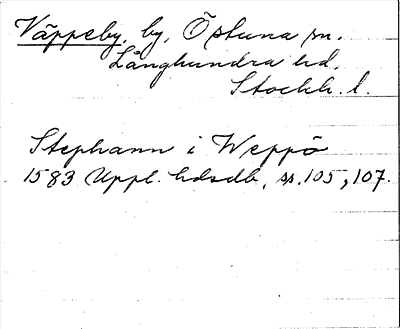 Väppeby, by, Östuna sn.
Långhundra hd.
Stockh. l.
Stephann i Weppö
1583 Uppl. hdsdb, sp. 105, 107.